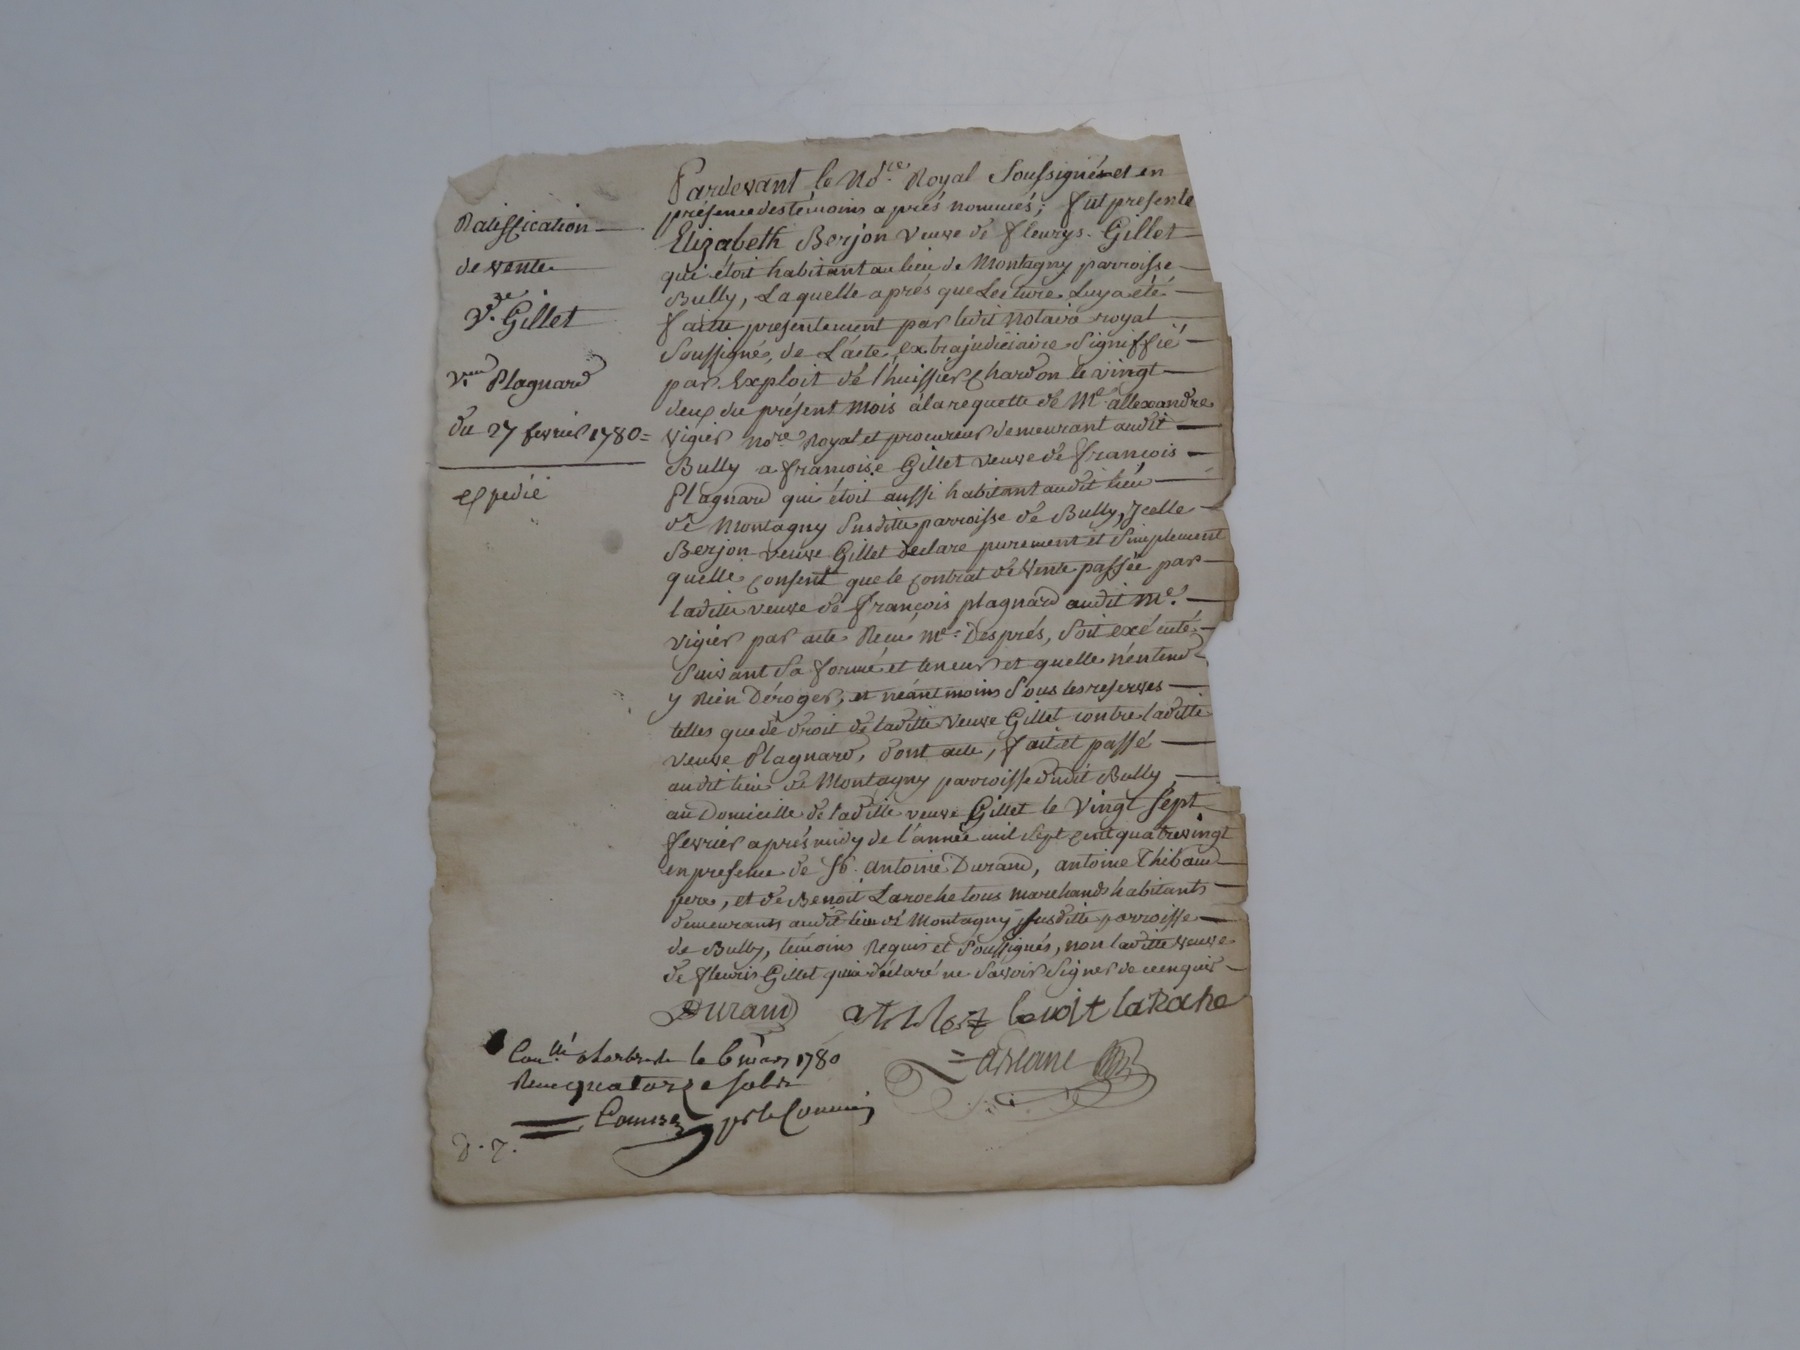 Ratiffication
de vente
Vve. Gillet
Plagnard
du 27 fevrier 1780 =
expedié
Pardevant le Nore. Royal Soussigné et en
présence des témoins aprés nommés; fut presente
Elizabeth Berjon veuve de fleurys Gillet
qui étoit habitant au lieu de Montagny parroisse
Bully, Laquelle aprés que Lecture Luy a eté
faitte presentement par ledit Notaire royal
Soussigné, de L'acte extrajudiciaire Signiffié
par Exploit de l'huissier Chardon le vingt
deux du présent mois à la requette de Me. allexandre
vigier Nore. Royal et procureur demeurant audit
Bully a francoise Gillet veuve de françois
Plagnard qui étoit aussi habitant audit lieu
de Montagny Susditte parroisse de Bully, Jcelle
Berjon veuve Gillet declare purement et Simplement
quelle consent que le contrat de vente passée par
laditte veuve de françois plagnard audit Me.
vigier par acte Recu Me. Després, Soit exécuté
Suivant Sa forme et teneur et quelle n'entend
y Rien Déroger, et néantmoins Sous les reserves
telles que de droit de laditte veuve Gillet contre laditte
veuve Plagnard, dont acte, fait et passé
audit lieu de Montagny parroisse dudit Bully
au Domicille de laditte veuve Gillet le vingt Sept
fevrier aprés midy de l'année mil sept cent quatrevingt
en presence de Sr. Antoine Durand, antoine Thibaud
pere, et de Benoit Laroche tous marchands habitants
demeurants audit lieu de Montagny susditte parroisse
de Bully, témoins Requis et Soussignés, non laditte veuve
de fleuris Gillet qui a déclaré ne Savoir Signer de ce enquise
Durand benoit laRoche
le 6 mars 1780
Recu quatorze sols